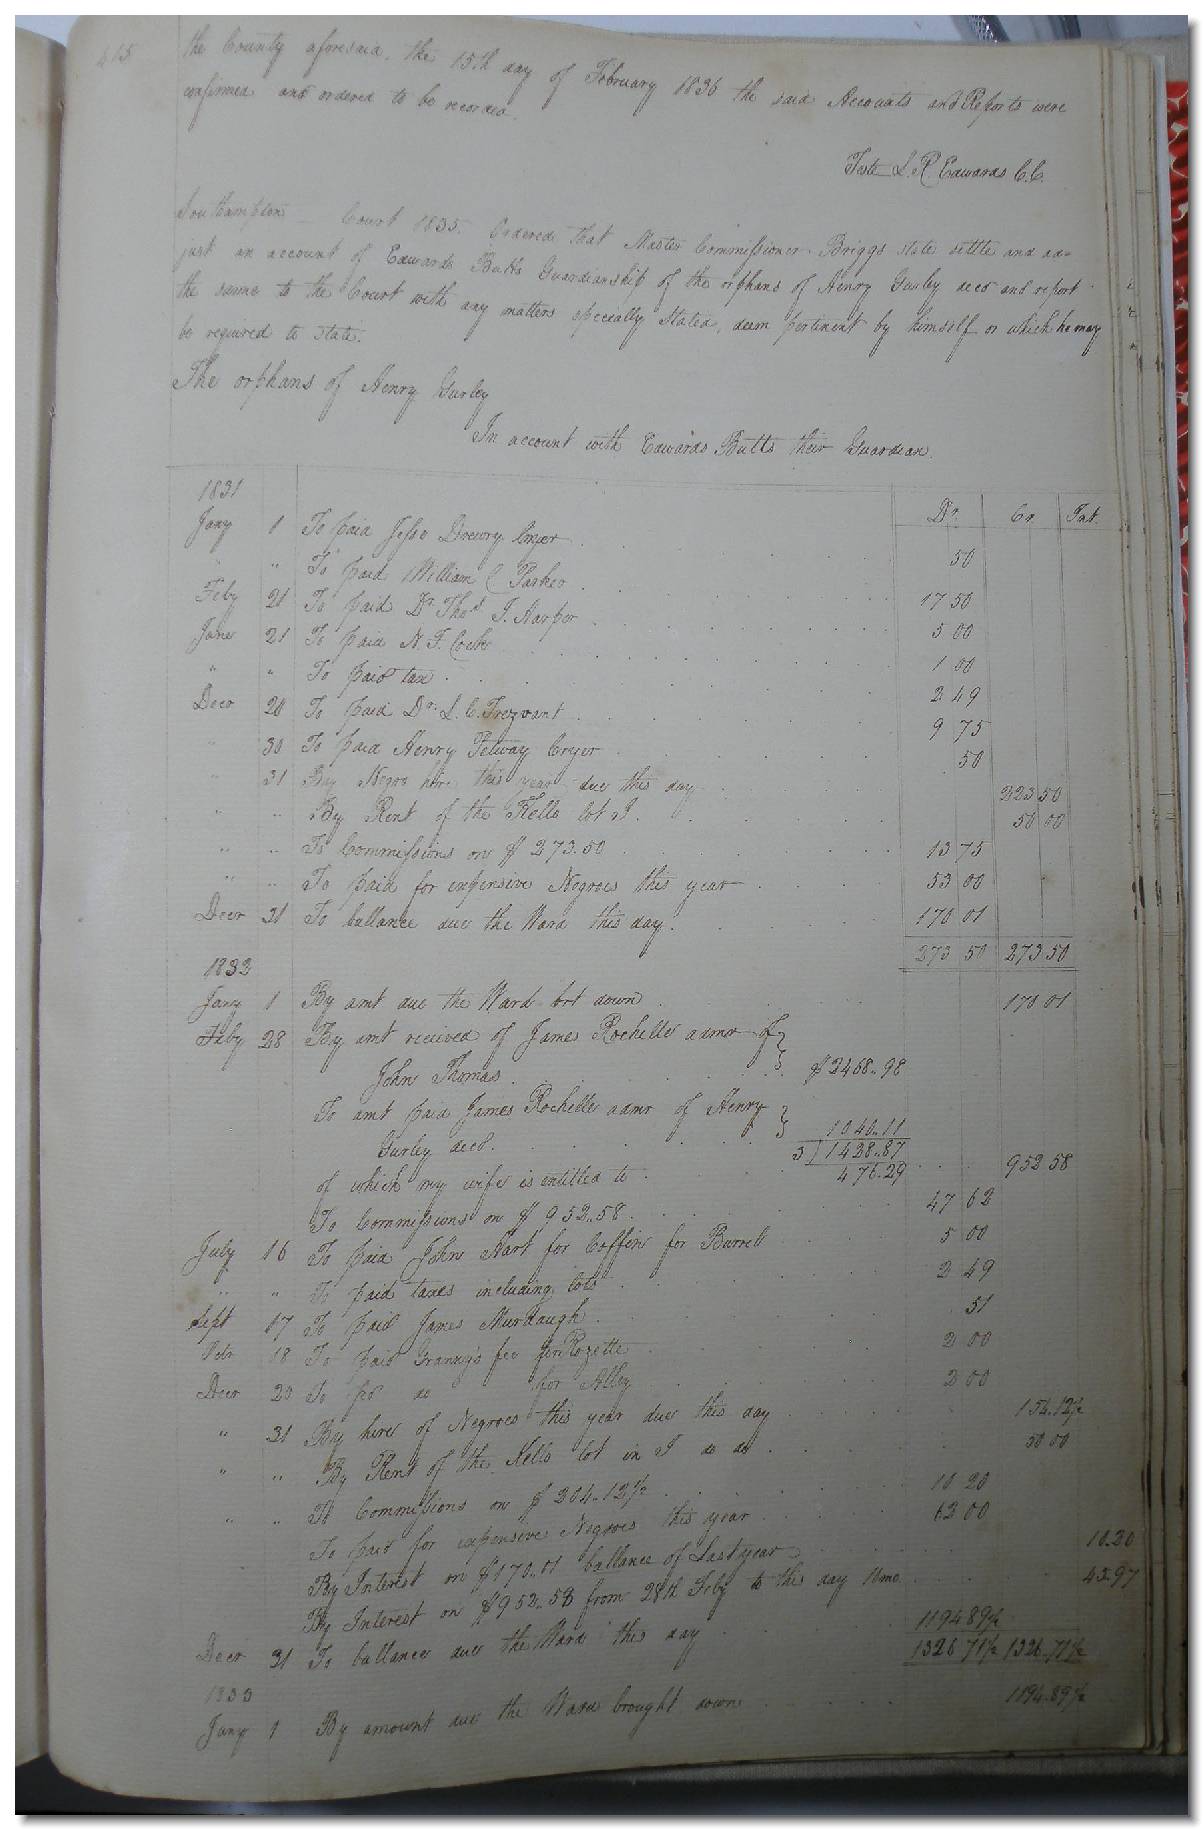 415
the County aforesaid, the 15th day of February 1836 the said Accounts and Reports were
confirmed and ordered to be recorded.
Teste L. R. Edwards C.C.
Southampton Court 1835. Ordered that Master Commissioner Briggs state settle and ad=
just an account of Edwards Butts Guardianship of the orphans of Henry Gurley decd and report
the same to the Court with any matters specially stated, deem pertinent by himself or which he may
be required to state.
The orphans of Henry Gurley
In account with Edwards Butts their Guardian.
1831 Dr. Cr. Int.
Jany 1 To paid Jesse Drewry Cryer 50
" " To paid William C Parker 17 50
Feby 21 To paid Dr Thos. J. Harper 5 00
June 21 To paid N. F. Cocke 1 00
" " To paid tax 2 49
Decr 20 To paid Dr. L. C. Trezvant 9 75
" 30 To paid Henry Petway Cryer 50
" 31 By Negro hire this year due this day 223 50
" " By Rent of the Kello lot I. 50 00
" " To Commissions on $ 273.50 13 75
" " To paid for expensive Negroes this year 53 00
Decr 31 To ballance due the Ward this day. 170 01
273 50 273 50
1832
Jany 1 By amt due the Ward brt down 170 01
Feby 28 By amt received of James Rochelle admr of
John Thomas $2468..98
To amt paid James Rochelle admr of Henry
Gurley decd. 1040..11
3 | 1428..87
of which my wife is entitled to 476.29 952 58
To Commissions on $ 952..58 47 62
July 16 To paid John Hart for Coffin for Burrell 5 00
" " To paid taxes including lots 2 49
Sept 17 To paid James Murdaugh 51
Octr 18 To paid Granny's fee for Rozette 2 00
Decr 20 To pd do for Alley 2 00
" 31 By hire of Negroes this year due this day 154.12½
" " By Rent of the Kello lot in I do do 50 00
" " To Commissions on $ 204..12½ 10 20
To paid for expensive Negroes this year 62 00
By Interest on $170..01 ballance of Last year 10.20
By Interest on $952..58 from 28th Feby to this day 10mo 42.97
Decr 31 To ballance due the Ward this day 1194 89½
1326 71½ 1326.71½
1833
Jany 1 By amount due the Ward brought down 1194.89½